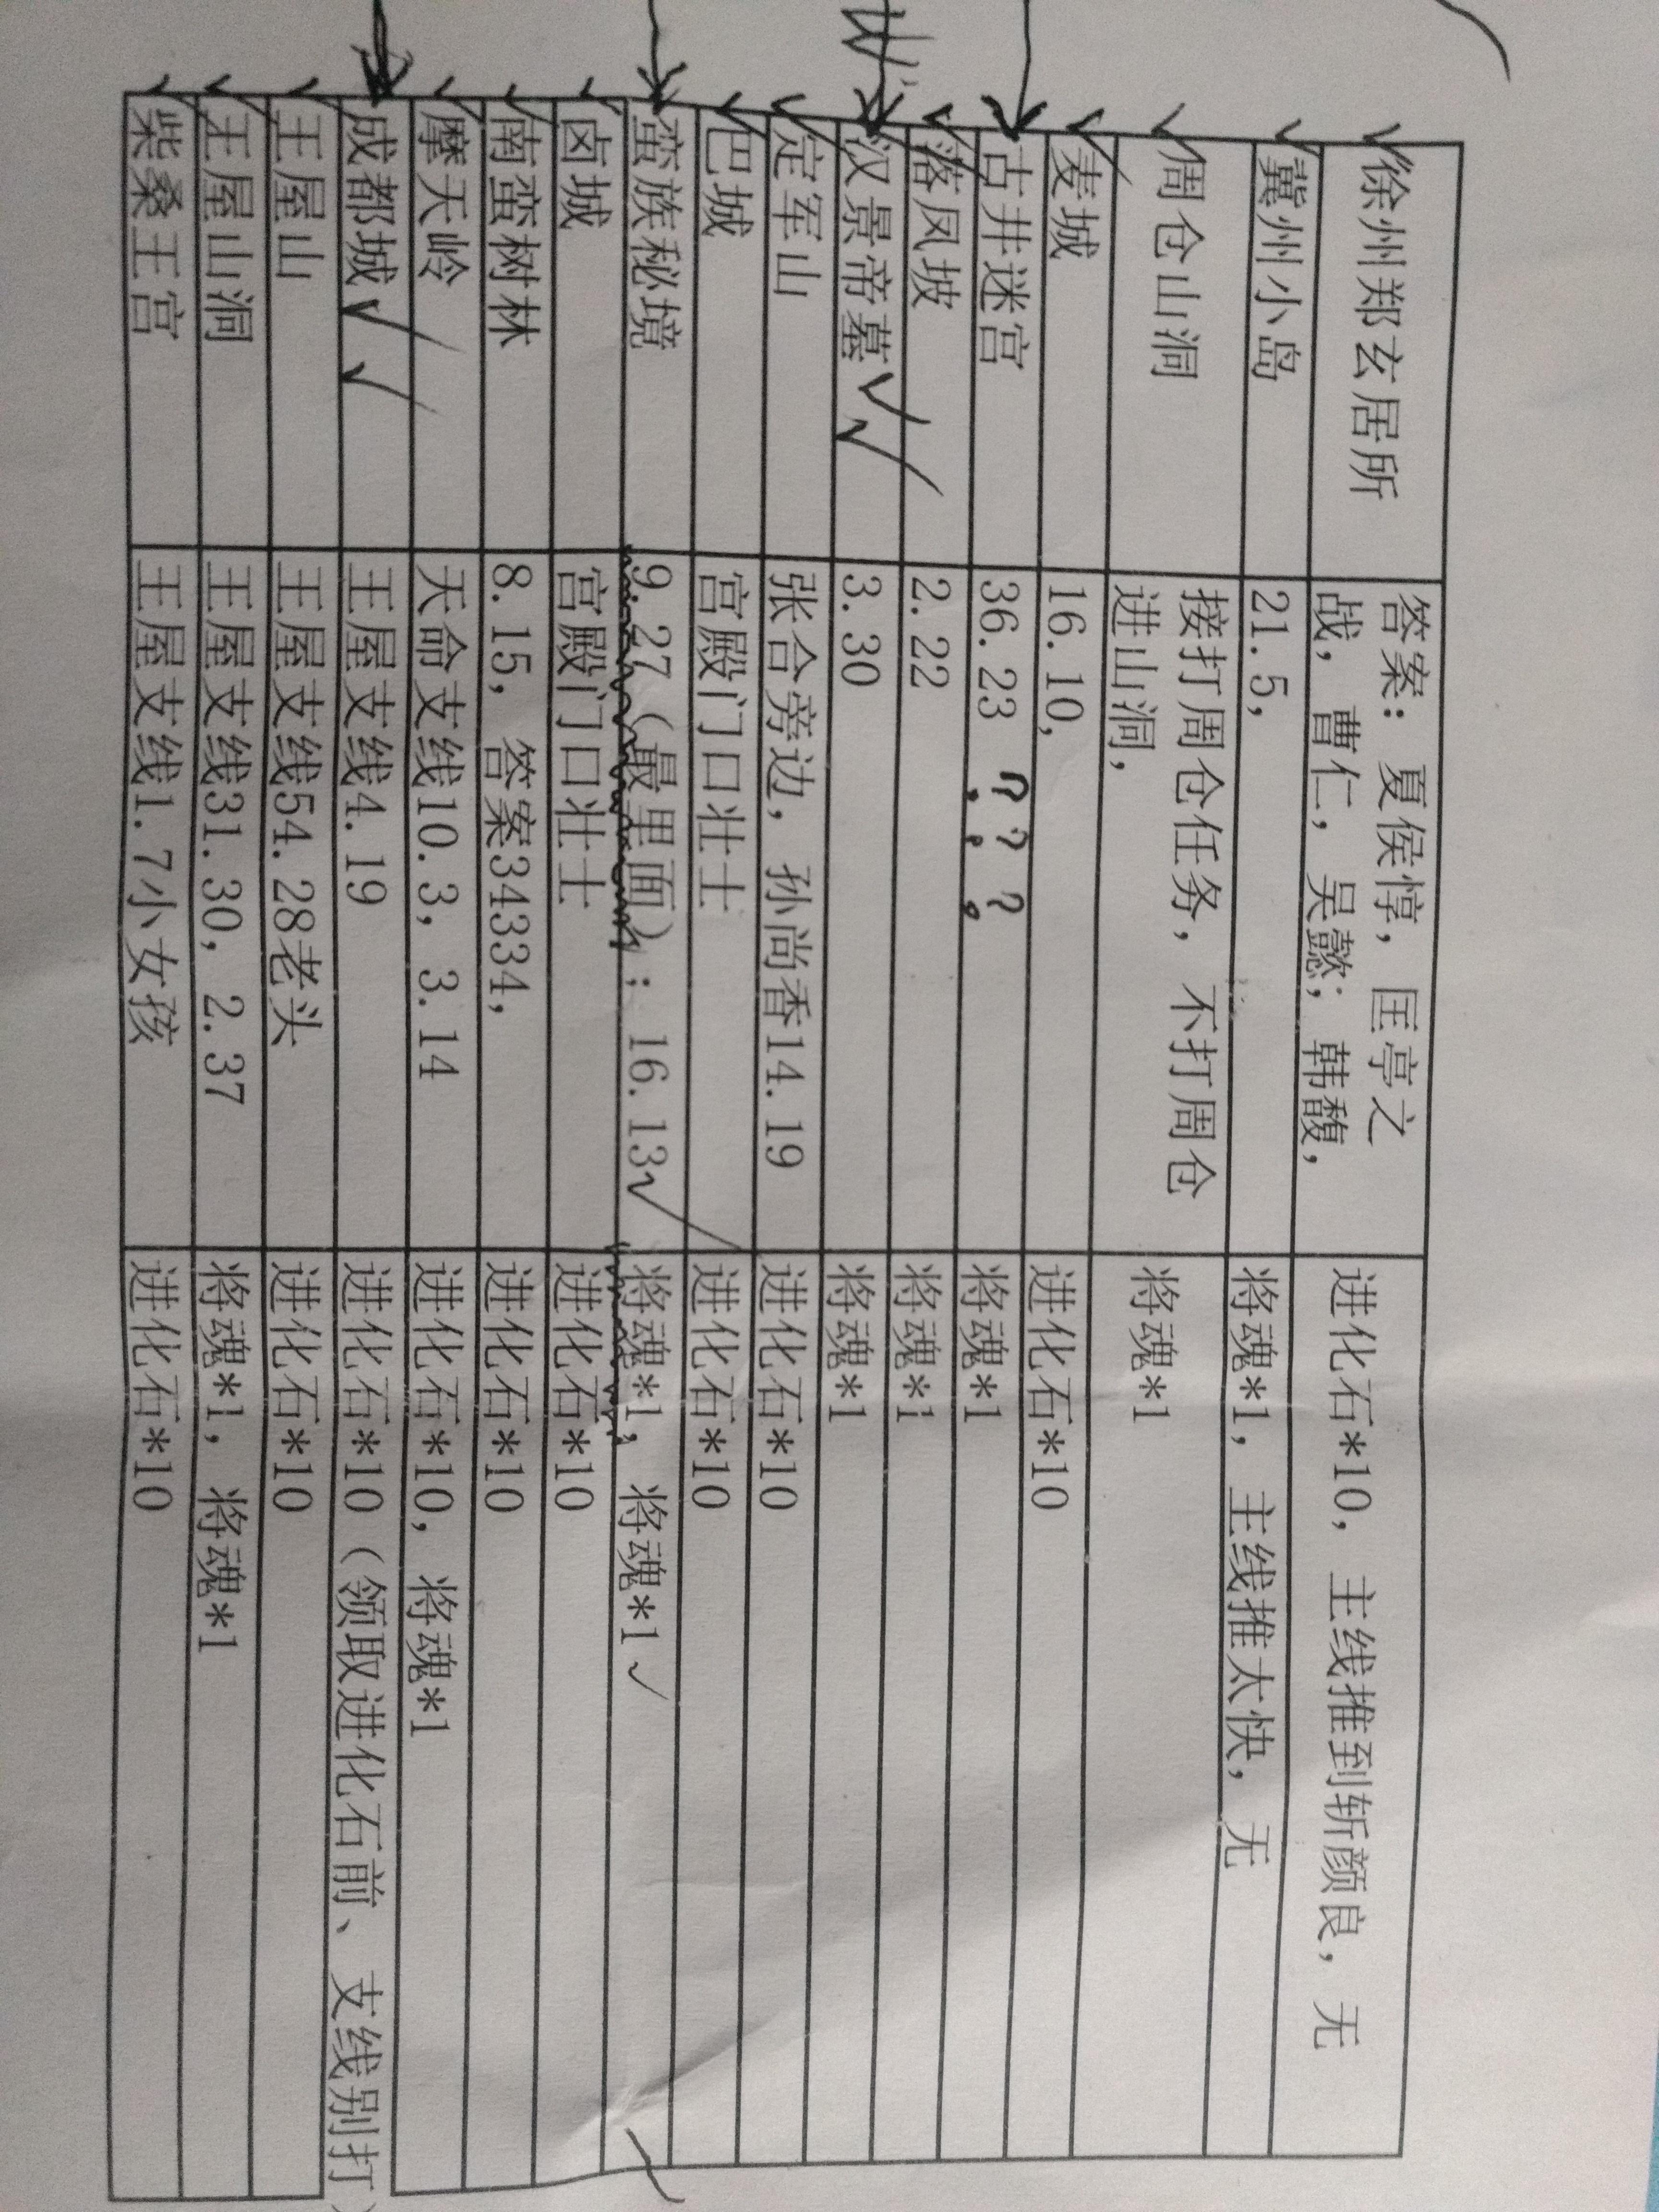 徐州郑玄居所 答案：夏侯惇，匡亭之 进化石*10，主线推到斩颜良，无
战，曹仁，吴懿；韩馥，
冀州小岛 21.5， 将魂*1，主线推太快，无
周仓山洞 接打周仓任务，不打周仓 将魂*1
进山洞，
麦城 16.10， 进化石*10
古井迷宫 36.23 ？？？ 将魂*1
落凤坡 2.22 将魂*1
汉景帝墓 3.30 将魂*1
定军山 张合旁边，孙尚香14.19 进化石*10
巴城 宫殿门口壮士 进化石*10
蛮族秘境 9.27（最里面）；16.13 将魂*1，将魂*1
卤城 宫殿门口壮士 进化石*10
南蛮树林 8.15，答案34334， 进化石*10
摩天岭 天命支线10.3，3.14 进化石*10，将魂*1
成都城 王屋支线4.19 进化石*10（领取进化石前、支线别打）
王屋山 王屋支线54.28老头 进化石*10
王屋山洞 王屋支线31.30，2.37 将魂*1，将魂*1
柴桑王宫 王屋支线1.7小女孩 进化石*10